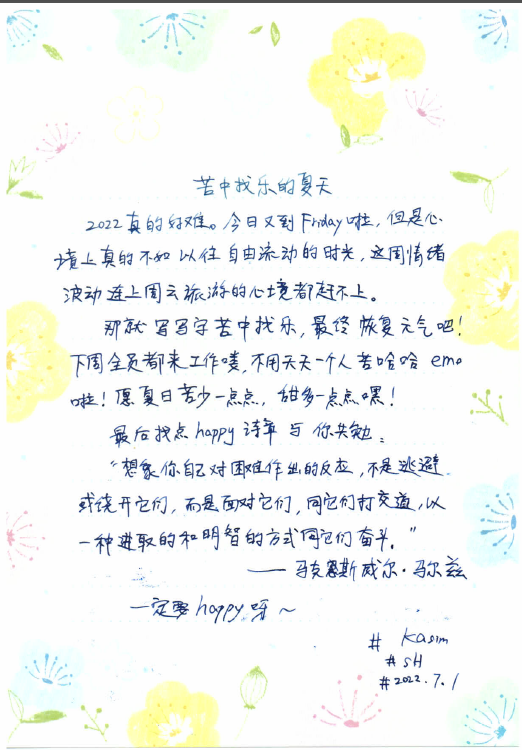 苦中找乐的夏天
2022真的好难。今日又到Friday啦，但是心
境上真的不如以往自由流动的时光，这周情绪
波动连上周云旅游的心境都赶不上。
那就写写字苦中找乐，最终恢复元气吧！
下周全员都来工作喽，不用天天一个人苦哈哈emo
啦！愿夏日苦少一点点，甜多一点点嘿！
最后找点happy诗章与你共勉：
“想象你自己对困难作出的反应，不是逃避
或绕开它们，而是面对它们，同它们打交道，以
一种进取的和明智的方式同它们奋斗。”
——马克思斯威尔·马尔兹
一定要happy呀～
# Kasim
# SH
# 2022.7.1